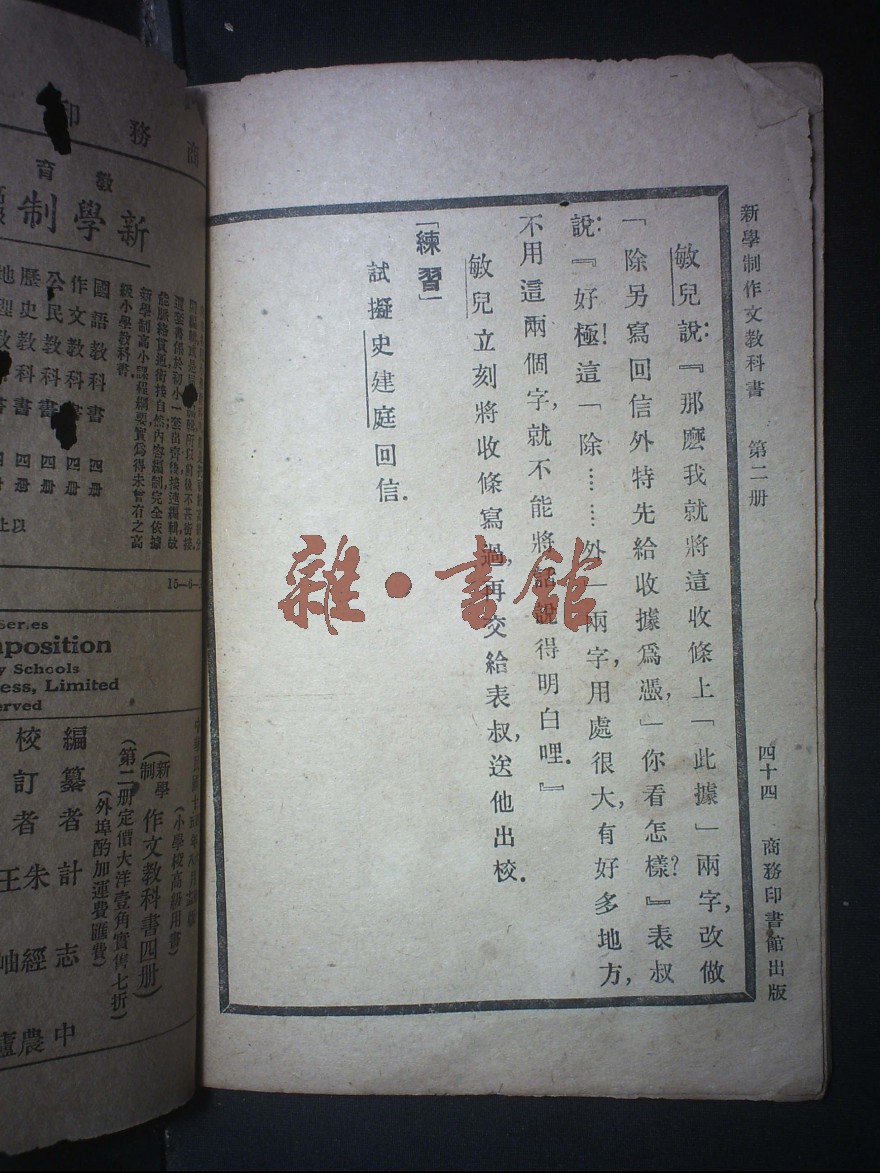 新學制作文教科書 第二册 四十四 商務印書館出版
敏兒說:『那麽我就將這收條上「此據」兩字,改做
「除另寫回信外特先給收據爲憑,」你看怎樣?』表叔
說:『好極!這「除………外」兩字,用處很大,有好多地方,
不用這兩個字,就不能將話說得明白哩.』
敏兒立刻將收條寫過,再交給表叔,送他出校.
「練習」
試擬史建庭回信.
雜·書館
商務印
教育
新學制
國語教科書 四册
作文教科書 四册
公民教科書 四册
歷史教科書 四册
以上
還至書係於初小一套出齊後接連編輯故
能脈絡貫通銜接自然內容編制完全依據
新學制高小課程綱要實爲得未曾有之高
級小學教科書
15—6—
Series
position
y Schools
ess, Limited
erved
(小學校高級用書)
(新學制 作文教科書四册)
(第二册定價大洋壹角實售七折)
(外埠酌加運費匯費)
編纂者 計志中
校訂者 朱經農
王岫廬